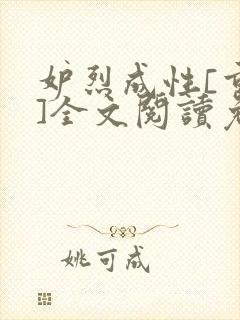 妒烈成性[重
]全文閱讀免
姚可成